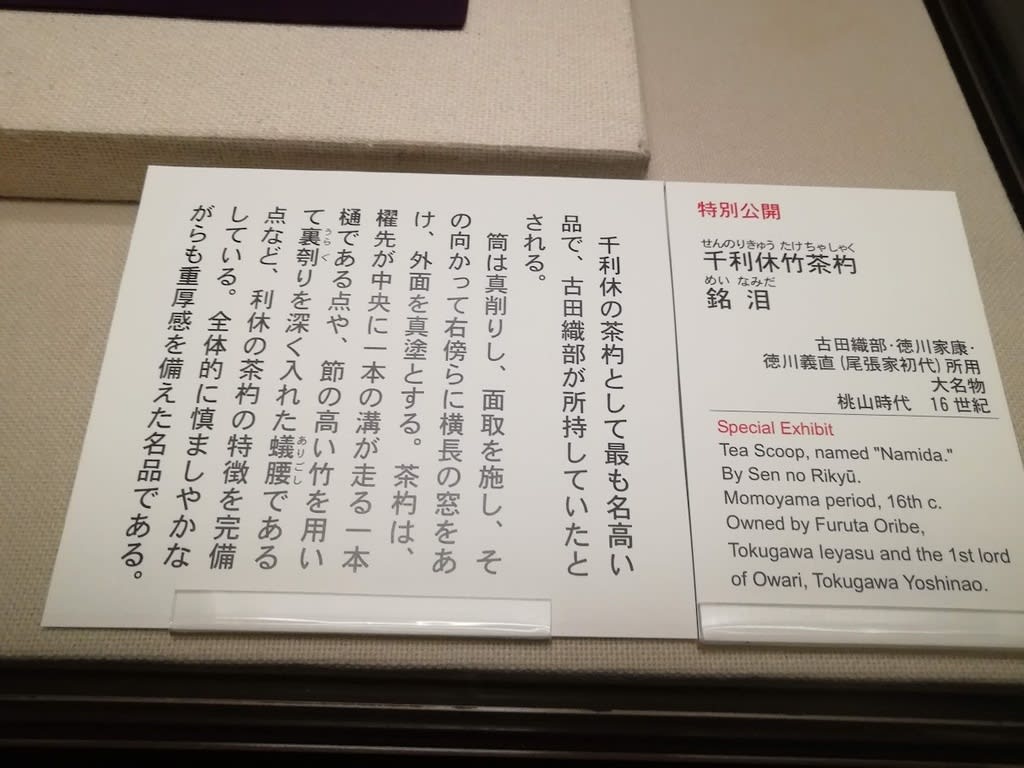 特別公開
せんのりきゅう たけちゃしゃく
千利休竹茶杓
めい なみだ
銘 泪
古田織部･徳川家康･
徳川義直(尾張家初代)所用
大名物
桃山時代 16世紀
Special Exhibit
Tea Scoop, named "Namida."
By Sen no Rikyū.
Momoyama period, 16th c.
Owned by Furuta Oribe,
Tokugawa Ieyasu and the 1st lord
of Owari, Tokugawa Yoshinao.
千利休の茶杓として最も名高い
品で、古田織部が所持していたと
される。
筒は真削りし、面取を施し、そ
の向かって右傍らに横長の窓をあ
け、外面を真塗とする。茶杓は、
櫂先が中央に一本の溝が走る一本
樋である点や、節の高い竹を用い
て裏刳りを深く入れた蟻腰である
うらぐ
ありごし
点など、利休の茶杓の特徴を完備
している。全体的に慎ましやかな
がらも重厚感を備えた名品である。